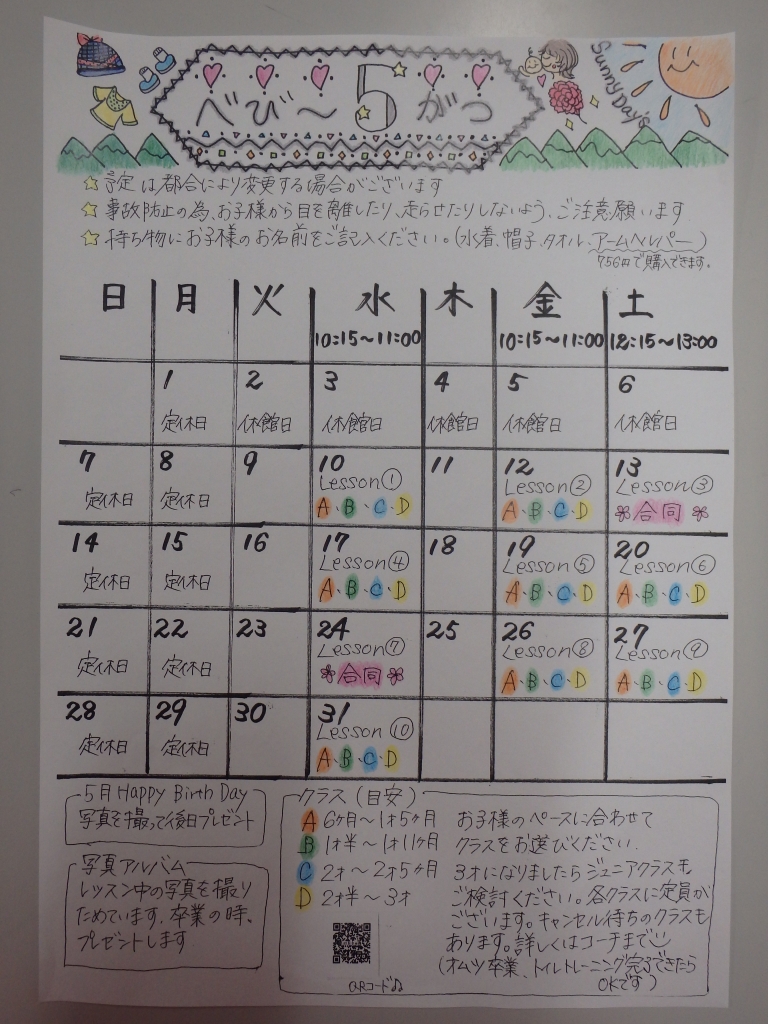 べび〜5がつ
Sunny Day's
☆予定は都合により変更する場合がございます
☆事故防止の為、お子様から目を離したり、走らせたりしないよう、ご注意願います
☆持ち物にお子様のお名前をご記入ください。(水着、帽子、タオル、アームヘルパー)
756円で購入できます。
日 月 火 水 木 金 土
10:15〜11:00 10:15〜11:00 12:15〜13:00
1 2 3 4 5 6
定休日 休館日 休館日 休館日 休館日 休館日
7 8 9 10 11 12 13
定休日 定休日 Lesson① Lesson② Lesson③
A、B、C、D A、B、C、D 合同
14 15 16 17 18 19 20
定休日 定休日 Lesson④ Lesson⑤ Lesson⑥
A、B、C、D A、B、C、D A、B、C、D
21 22 23 24 25 26 27
定休日 定休日 Lesson⑦ Lesson⑧ Lesson⑨
合同 A、B、C、D A、B、C、D
28 29 30 31
定休日 定休日 Lesson⑩
A、B、C、D
5月 Happy Birth Day
写真を撮って後日プレゼント
写真アルバム
レッスン中の写真を撮り
ためています。卒業の時、
プレゼントします
クラス(目安)
A 6ヶ月〜1才5ヶ月
B 1才半〜1才11ヶ月
C 2才〜2才5ヶ月
D 2才半〜3才
QRコード♫
お子様のペースに合わせて
クラスをお選びください.
3才になりましたらジュニアクラスも
ご検討ください。各クラスに定員が
ございます。キャンセル待ちのクラスも
あります。詳しくはコーチまで
(オムツ卒業、トイレトレーニング完了できたら
OKです)